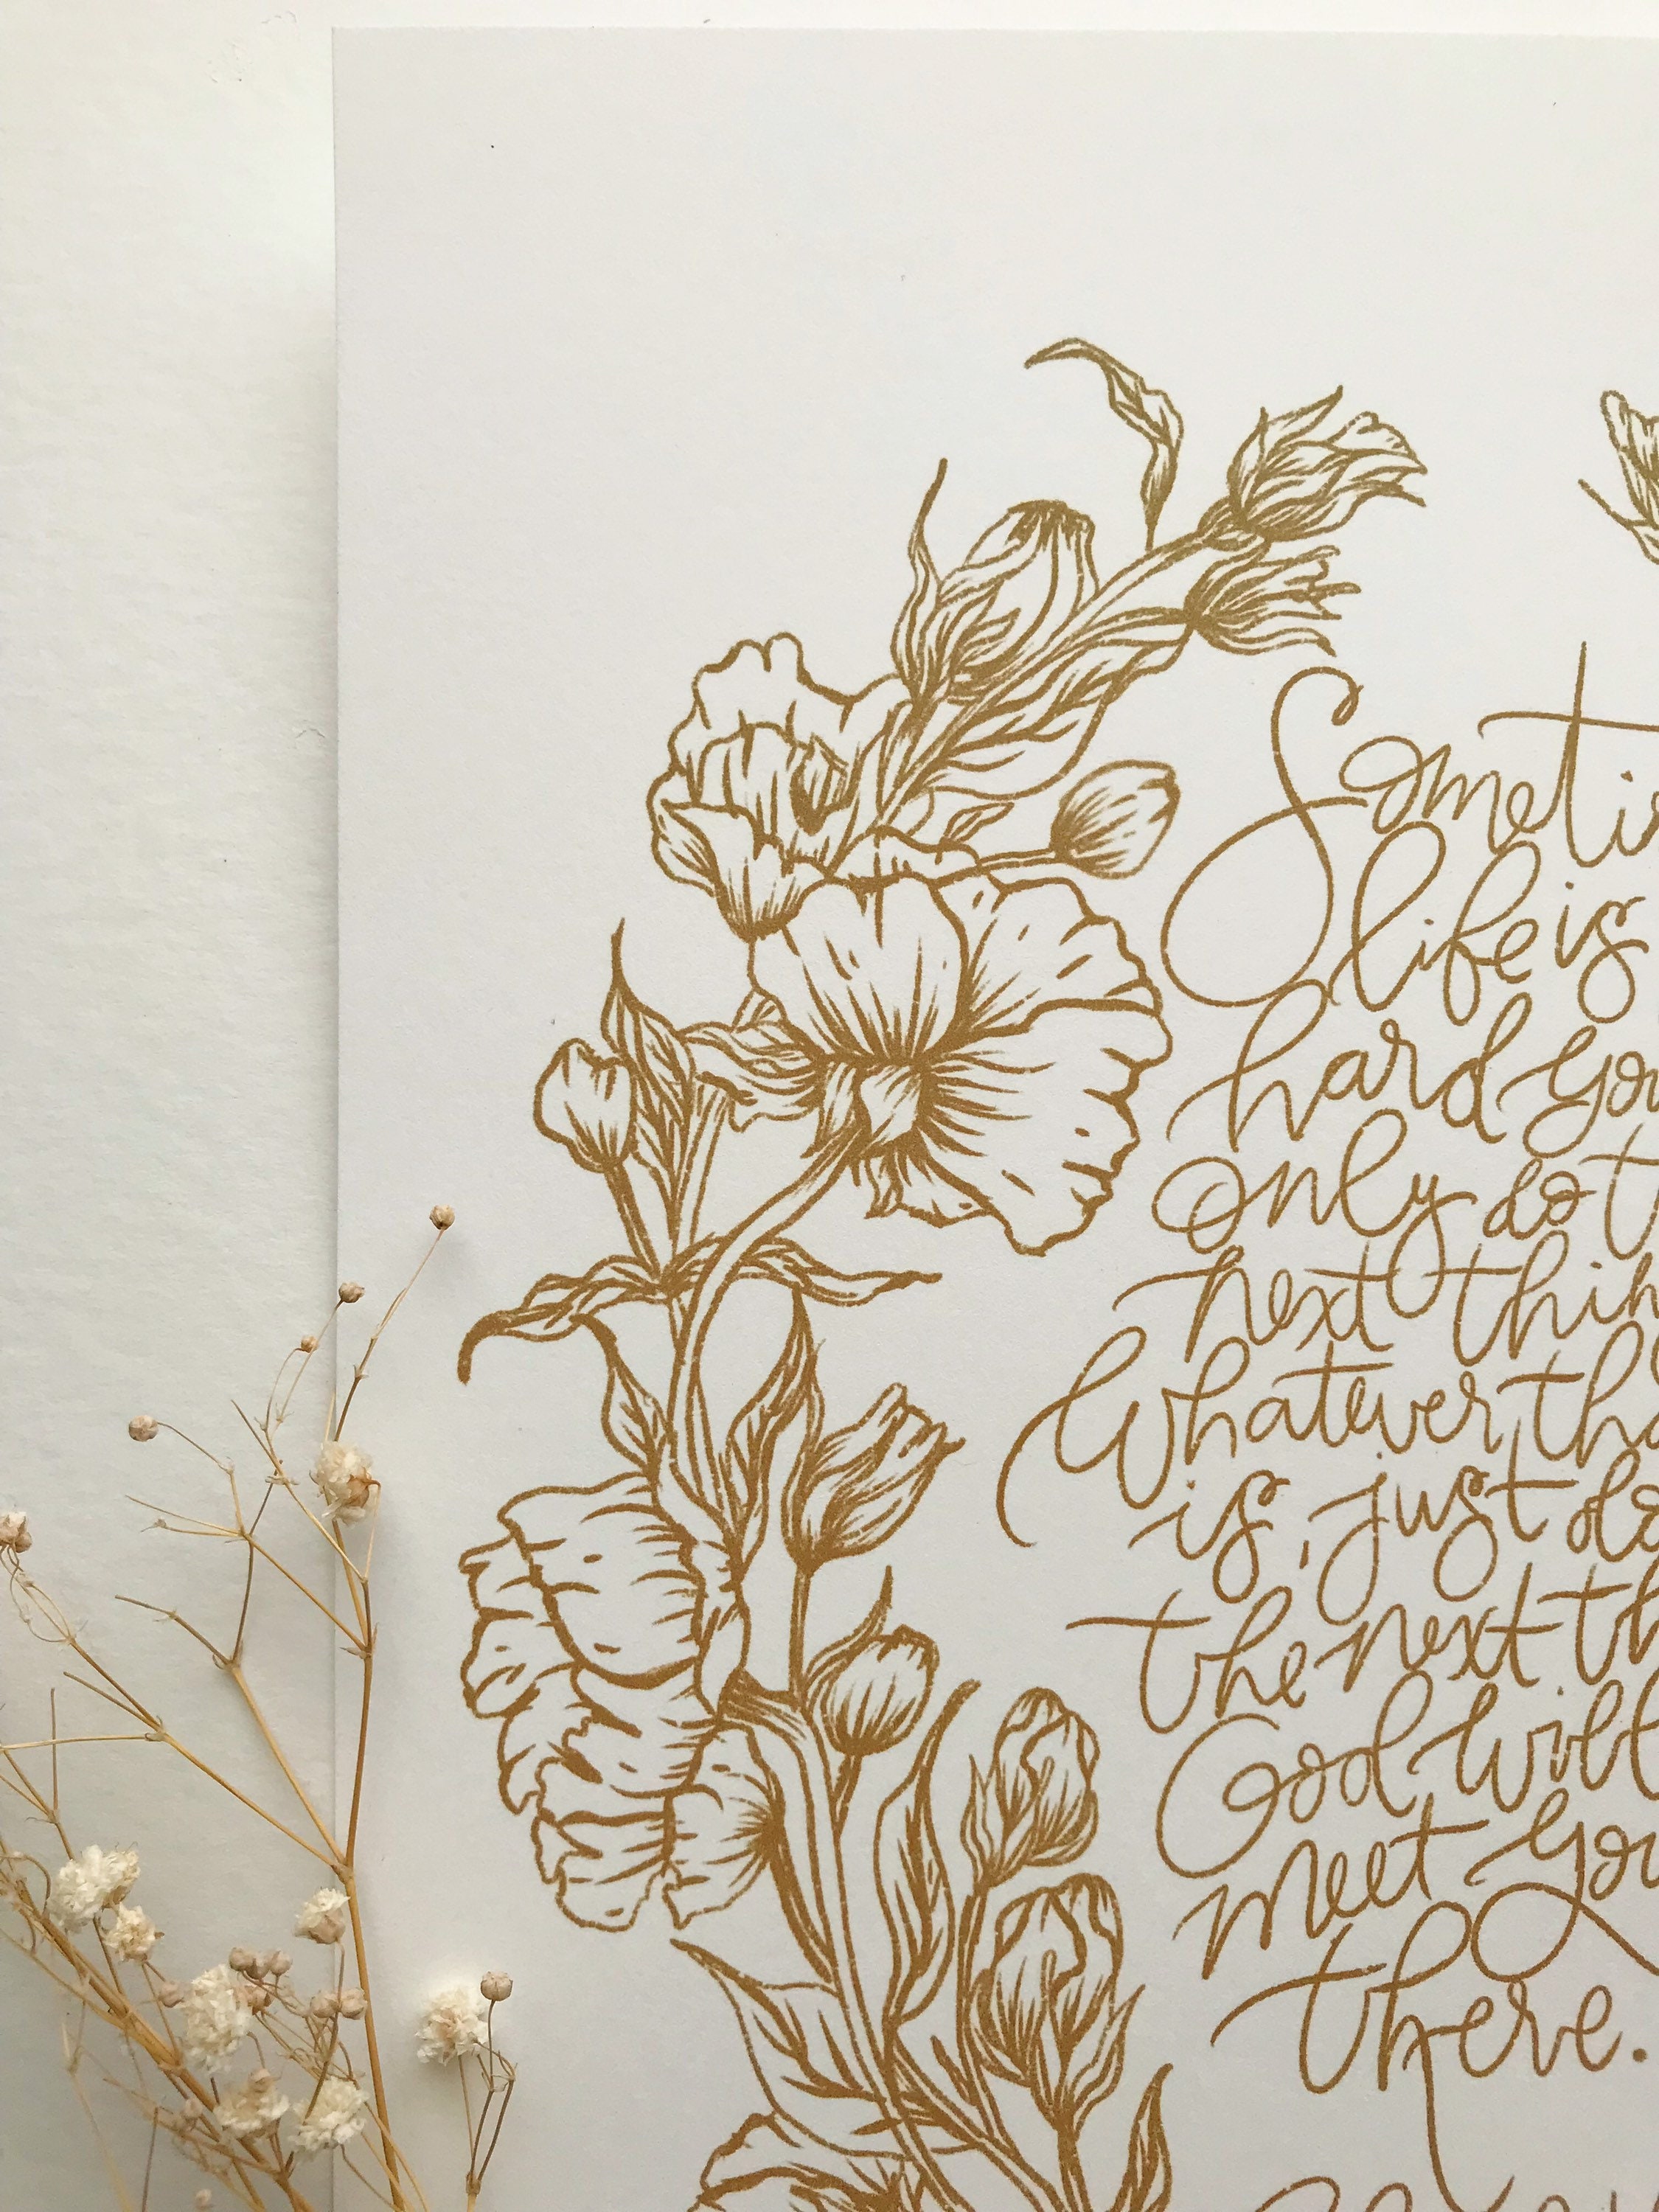 Someti
life is
hard you
only do t
next thin
Whatever tha
is, just do
the next th
God will
meet you
there.